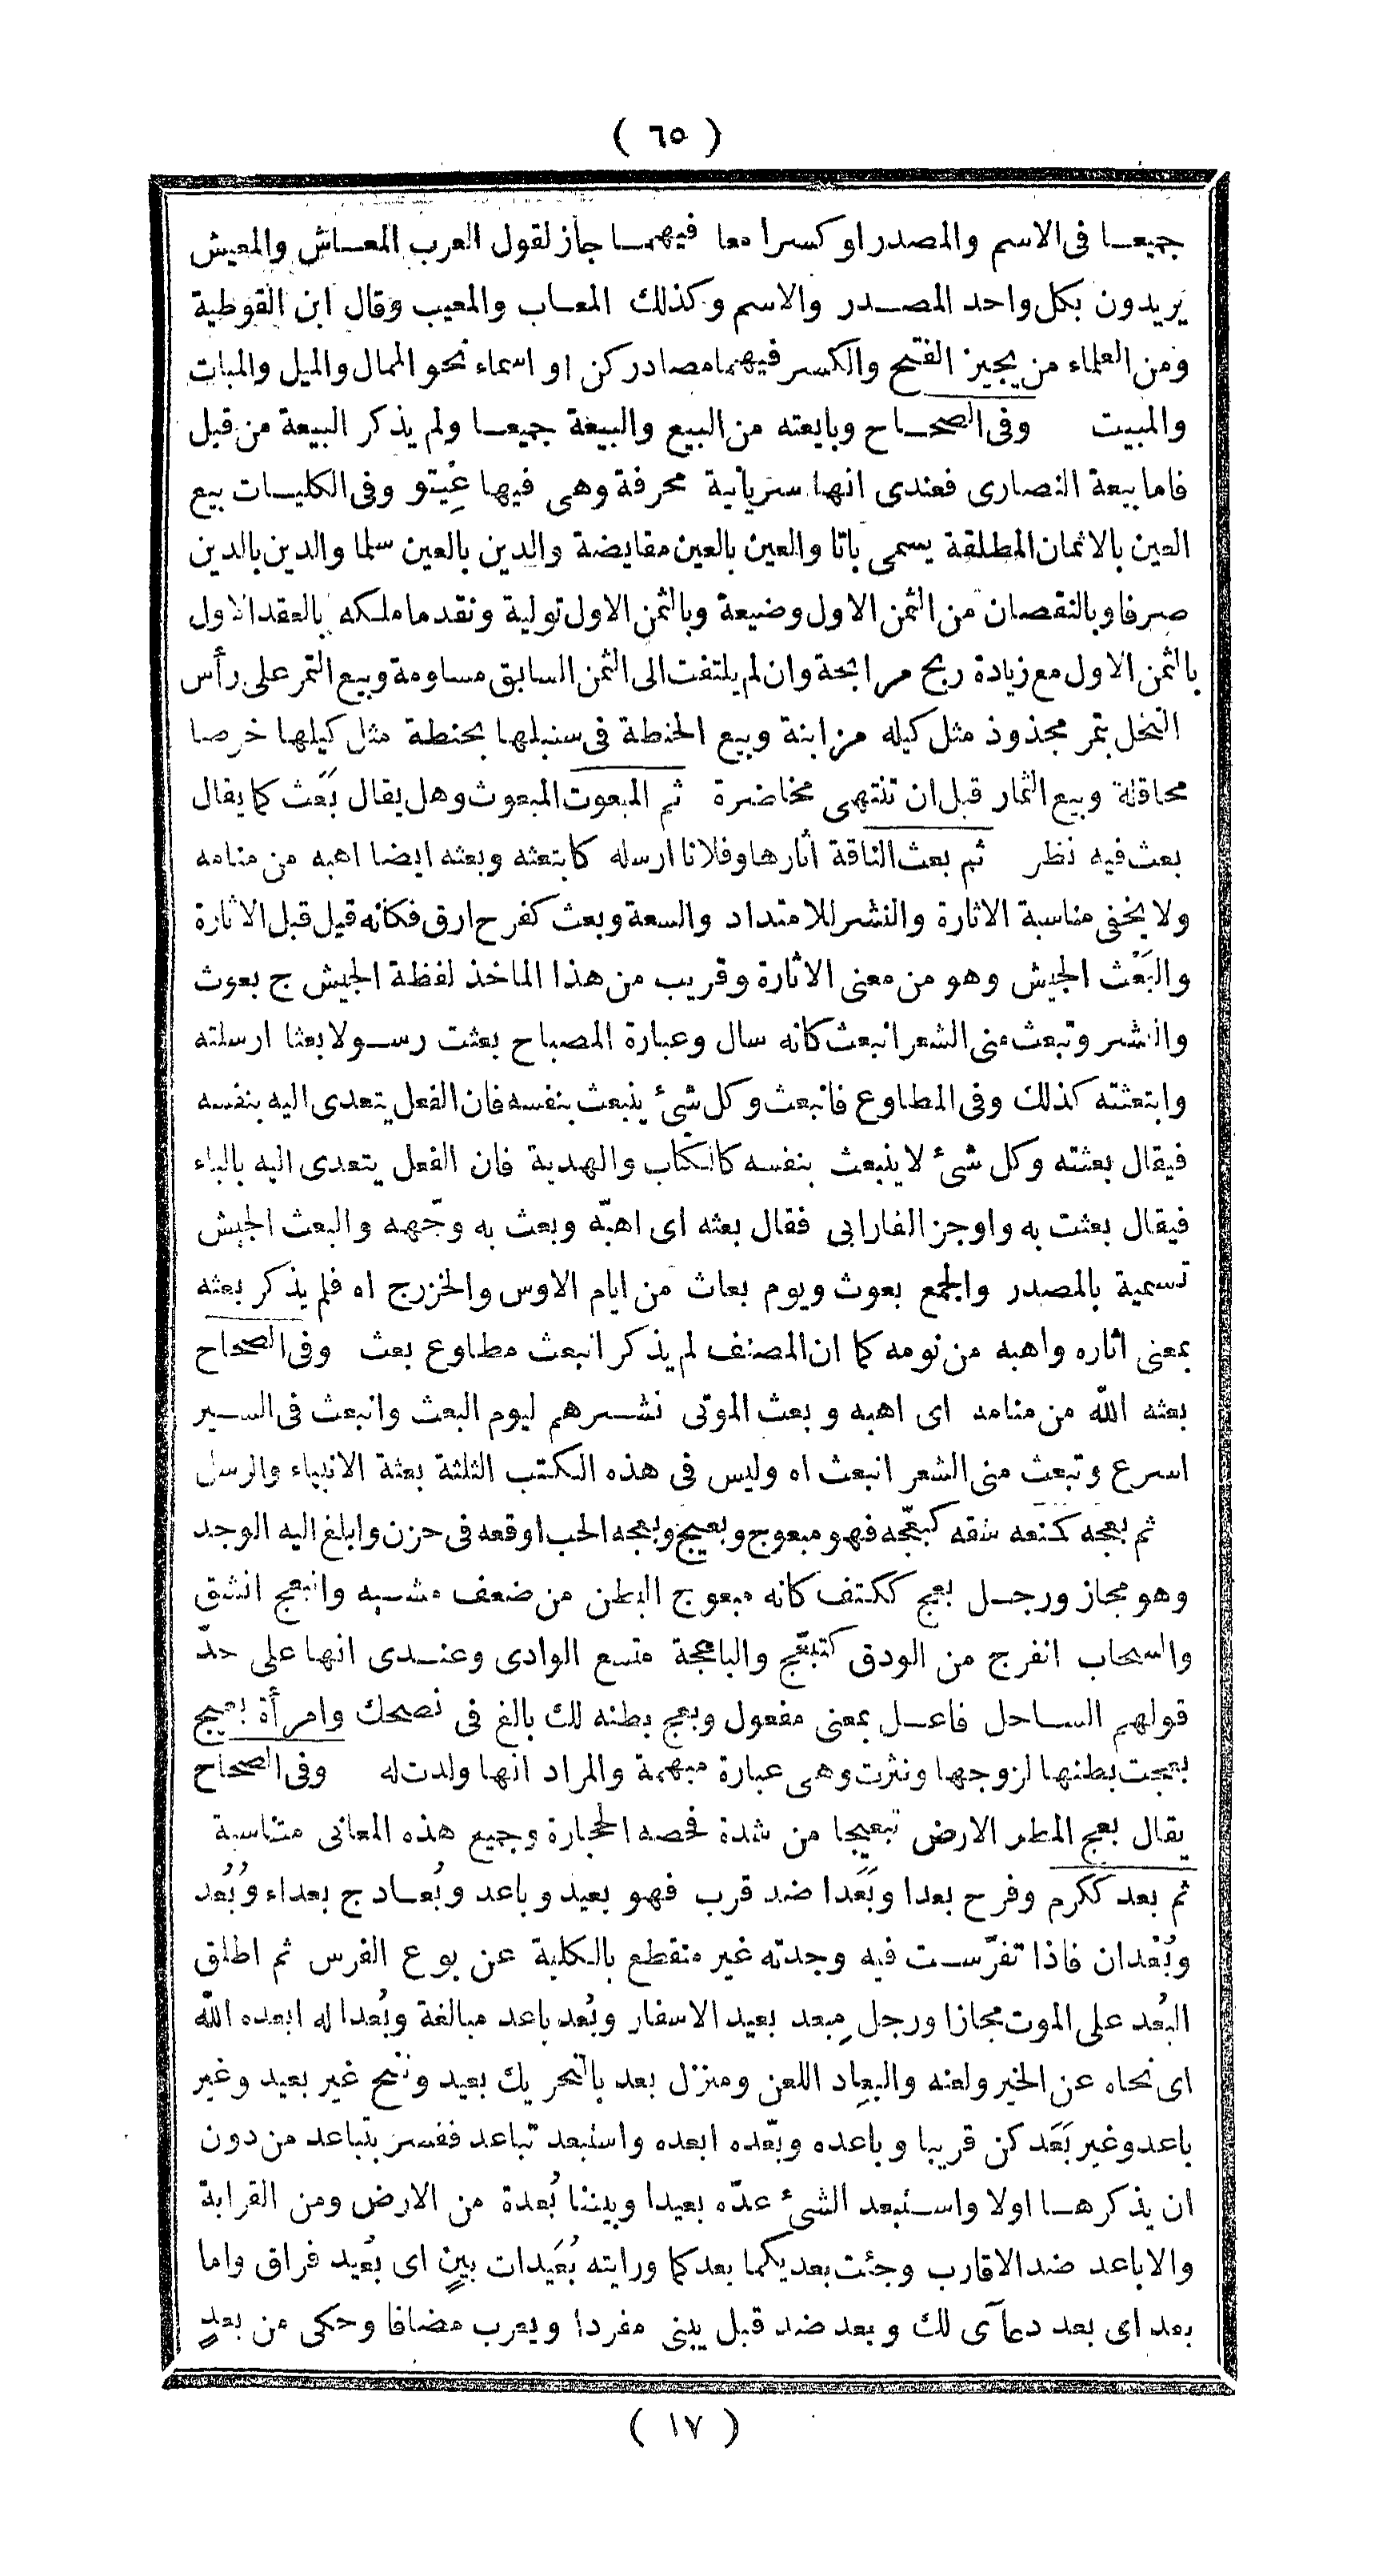 ( ٦٥ )
جميعـا فى الاسم والمصدر او كسرا معا فيهمـا جاز لقول العرب المعـاش والمعيش
يريدون بكل واحد المصـدر والاسم وكذلك المعـاب والمعيب وقال ابن القوطية
ومن العلماء من يجيز الفتح والكسر فيهما مصادر كن او اسماء نحو الممال والميل والمبات
والمبيت وفى الصحـاح وبايعته من البيع والبيعة جميعـا ولم يذكر البيعة من قبل
فاما بيعة النصارى فعندى انها سريانية محرفة وهى فيها عِيتو وفى الكليـات بيع
العين بالاثمان المطلقة يسمى باتا والعين بالعين مقايضة والدين بالعين سلما والدين بالدين
صرفا وبالنقصان من الثمن الاول وضيعة وبالثمن الاول تولية ونقد ما ملكه بالعقد الاول
بالثمن الاول مع زيادة ربح مرابحة وان لم يلتفت الى الثمن السابق مساومة وبيع التمر على رأس
النخل بتمر مجذوذ مثل كيله مزابنة وبيع الحنطة فى سنبلها بحنطة مثل كيلها خرصا
محاقلة وبيع الثمار قبل ان تنتهى مخاضرة ثم المبعوت المبعوث وهل يقال بَعَت كما يقال
بعث فيه نظر ثم بعث الناقة أثارها وفلانا ارسله كابتعثه وبعثه ايضا اهبه من منامه
ولا يخفى مناسبة الاثارة والنشر للامتداد والسعة وبعث كفرح ارق فكأنه قيل قبل الاثارة
والبَعْث الجيش وهو من معنى الاثارة وقريب من هذا الماخذ لفظة الجيش ج بعوث
والنشر وتبعث منى الشعر انبعث كانه سال وعبارة المصباح بعثت رسـولا بعثا ارسلته
وابتعثته كذلك وفى المطاوع فانبعث وكل شىء ينبعث بنفسه فان الفعل يتعدى اليه بنفسه
فيقال بعثته وكل شىء لا ينبعث بنفسه كالكتاب والهدية فان الفعل يتعدى اليه بالباء
فيقال بعثت به واوجز الفارابى فقال بعثه اى اهبّه وبعث به وجّهه والبعث الجيش
تسمية بالمصدر والجمع بعوث ويوم بعاث من ايام الاوس والخزرج اه فلم يذكر بعثه
بمعنى أثاره واهبه من نومه كما ان المصنف لم يذكر انبعث مطاوع بعث وفى الصحاح
بعثه الله من منامه اى اهبه وبعث الموتى نشـرهم ليوم البعث وانبعث فى السـير
اسرع وتبعث منى الشعر انبعث اه وليس فى هذه الكتب الثلثة بعثة الانبياء والرسل
ثم بعجه كمنعه شقه كبعّجه فهو مبعوج وبعيج وبعجه الحب اوقعه فى حزن وابلغ اليه الوجد
وهو مجاز ورجـل بعج ككتف كانه مبعوج البطن من ضعف مشـيه وانبعج انشق
والسحاب انفرج من الودق كتبعّج والباعجة متسع الوادى وعنـدى انها على حدّ
قولهم السـاحل فاعـل بمعنى مفعول وبعج بطنه لك بالغ فى نصحك وامرأة بعيج
بعجت بطنها لزوجها ونثرت وهى عبارة مبهمة والمراد انها ولدت له وفى الصحاح
يقال بعج المطر الارض تبعيجا من شدة فحصه الحجارة وجميع هذه المعانى متناسبة
ثم بعد ككرم وفرح بعدا وبَعَدا ضد قرب فهو بعيد وباعد وبُعـاد ج بعداء وبُعُد
وبُعْدان فاذا تفرّسـت فيه وجدته غير منقطع بالكلية عن بوع الفرس ثم اطلق
البُعد على الموت مجازا ورجل مِبعد بعيد الاسفار وبُعد باعد مبالغة وبُعدا له ابعده الله
اى نحاه عن الخير ولعنه والبعاد اللعن ومنزل بعد بالتحريك بعيد وتنح غير بعيد وغير
باعد وغير بَعَد كن قريبا وباعده وبعّده ابعده واستبعد تباعد ففسر بتباعد من دون
ان يذكرهـا اولا واسـتبعد الشىء عدّه بعيدا وبيننا بُعدة من الارض ومن القرابة
والاباعد ضد الاقارب وجئت بعديكما بعدكما ورايته بُعَيدات بينٍ اى بُعيد فراق واما
بعد اى بعد دعآى لك وبعد ضد قبل يبنى مفردا ويعرب مضافا وحكى من بعدٍ
( ١٧ )